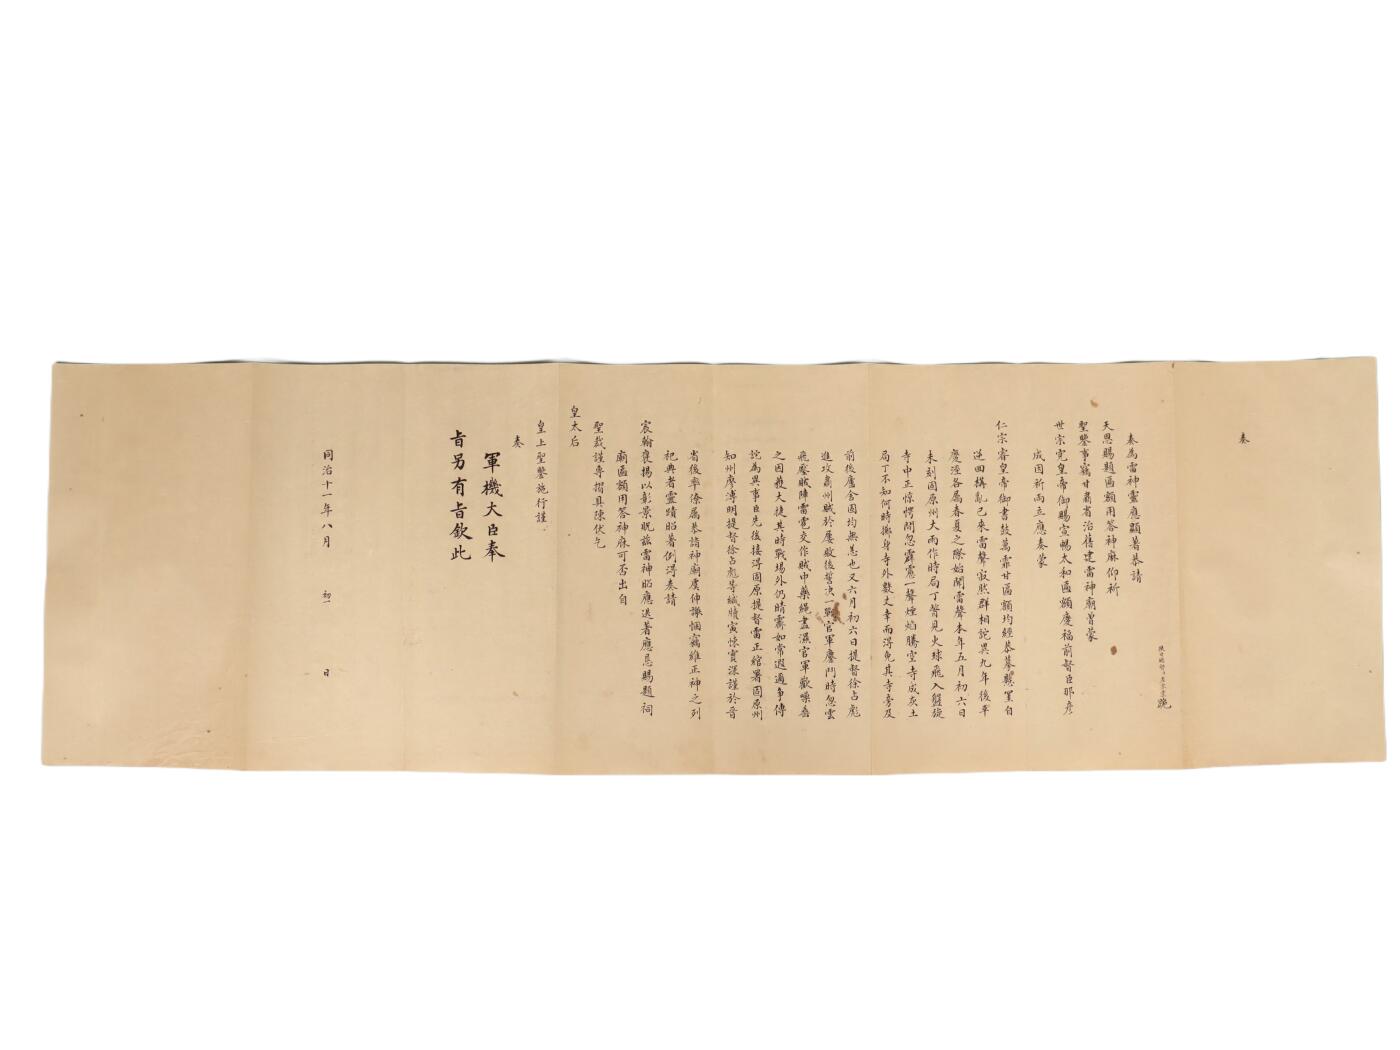 奏
陝甘總督臣左宗棠跪
奏為雷神靈應顯著恭請
天恩賜題匾額用答神庥仰祈
聖鑒事竊甘肅省治舊建雷神廟曾蒙
世宗憲皇帝御賜宣暢太和匾額慶福前督臣那彥
成因祈雨立應奏蒙
仁宗睿皇帝御書鼓萬霈甘匾額均經恭摹懸罣自
逆回構亂已來雷聲寂然群相詫異九年後平
慶涇各屬春夏之際始聞雷聲本年五月初六日
未刻固原州大雨作時局丁瞥見火球飛入盤旋
寺中正惊愕間忽霹靂一聲煙焰騰空寺成灰土
局丁不知何時擲身寺外數丈幸而得免其寺旁及
前後廬舍固均無恙也又六月初六日提督徐占彪
進攻肅州賊於屢敗後誓決一戰官軍鏖鬥時忽雲
飛壓賊陣雷電交作賊中藥繩盡濕官軍歡噪乘
之因獲大捷其時戰場外仍晴霽如常遐邇争傳
詫為異事臣先後接得固原提督雷正綰署固原州
知州廖溥明提督徐占彪等緘牘寅悚實深謹於晉
省後率僚属恭詣神廟虔伸謙悃竊維正神之列
祀典者靈蹟昭著例得奏請
宸翰褒揚以彰景貺茲雷神昭應迭著應恳賜題祠
廟匾額用答神庥可否出自
聖裁謹專摺具陳伏乞
皇太后
皇上聖鑒施行謹
奏
軍機大臣奉
旨另有旨欽此
同治十一年八月 初一 日